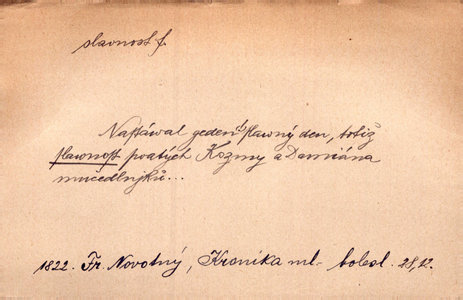 slavnost f.
Nastáwal geden slawný den, totiž
slawnost swatých Kozmy a Damiána
mučedlnjků...
1822. Fr. Novotný, Kronika ml. bolesl. 28,12.